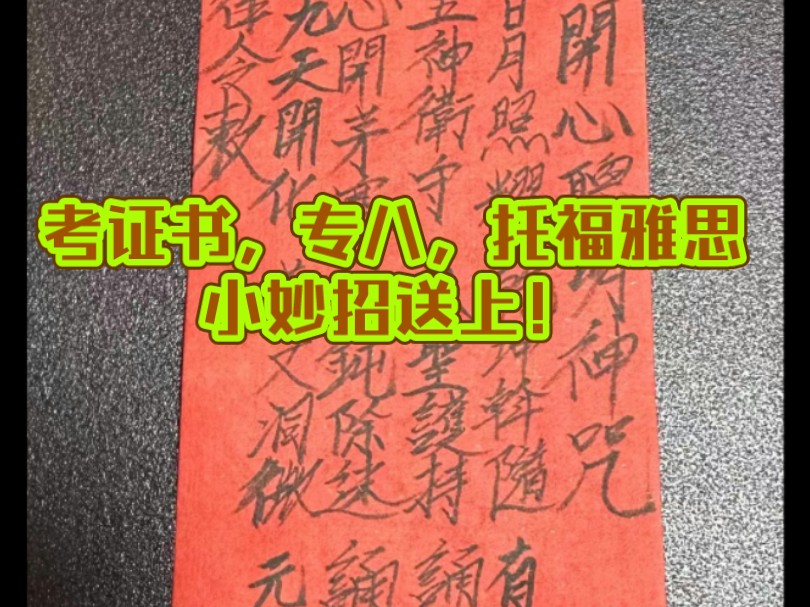 考证书，专八，托福雅思
小妙招送上！
開心聰明神咒
日月照耀 斡隨 有
五神衛守 聖護持 誦
心開茅 鈍除迷 誦
九天開化 文洞微 元
律令敕